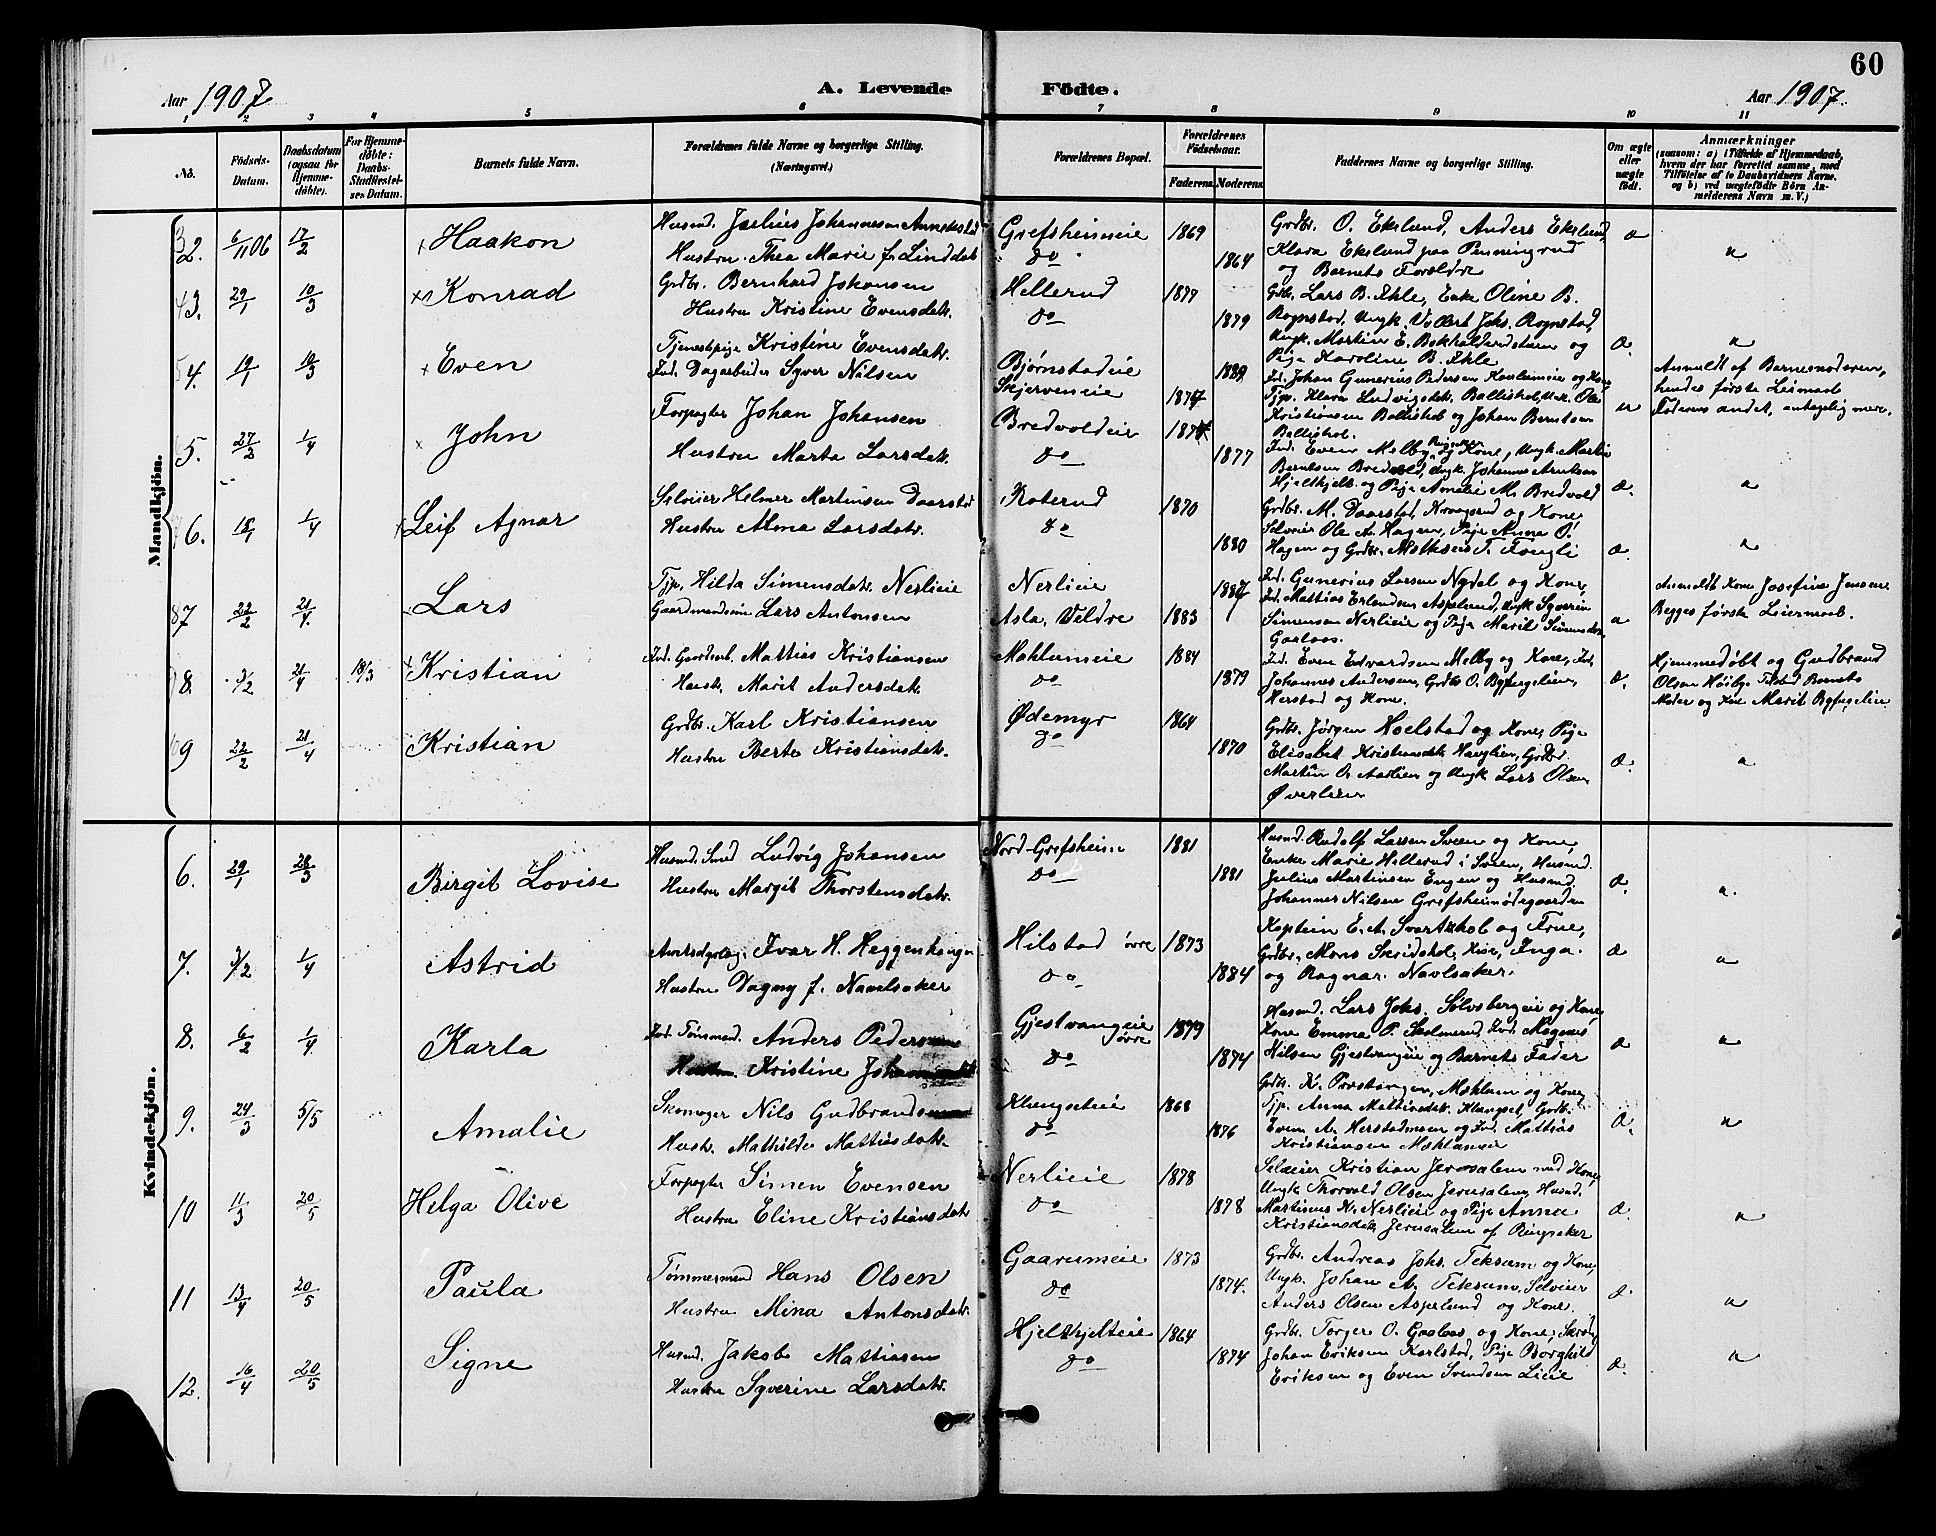 60
Aar 1907
A. Levende Födte.
Aar 1907.
1 2 3 4 5 6 7 8 9 10 11
No.
Födsels-Datum.
Daabsdatum (ogsaa for Hjemmedöbte).
For Hjemmedöbte: Daabs-Stadfæstelses Datum.
Barnets fulde Navn.
Forældrenes fulde Navne og borgerlige Stilling. (Næringsvei.)
Forældrenes Bopæl.
Forældrenes Födselsaar.
Faderens. Moderens.
Faddernes Navne og borgerlige Stilling.
Om ægte eller uægte födt.
Anmærkninger
(saasom: a) i Tilfælde af Hjemmedaab, hvem der har forrettet samme, med Tilföielse af to Daabsvidners Navne, og b) ved uægtefödte Börn Anmelderens Navn m. V.)
Mandkjön.
2. 6/11 06 17/2 Haakon
Husmd. Julius Johannesen
Hustru Thea Marie f. Linddal
Grefsheimeie
do
1869
1864
Grdbr. O. Ekelund, Anders Ekelund,
Klara Ekelund paa Pinningrud
og Barnets Forældre
3. 29/1 10/3 Konrad
Grdbr. Bernhard Johansen
Hustru Kristine Evensdatr.
Hellerud
do
1877
1879
Grdbr. Lars B. Æhle, Enke Oline B.
Rognstad, Ungk. Vollert Johs. Rognstad,
Ungk. Martin E. og
Pige Karoline B. Æhle
4. 19/1 10/3 Even
Tjenestepige Kristine Evensdatr.
Ind. Dagarbeider Syver Nilsen
Bjørnstadeie
Skjerveneie
1889
1877
Ind. Johan Gunerius Pedersen og Kone
Tjp. Klara Ludvigsdatr. Ballishol, Ole
Kristiansen Ballishol og Johan Berntsen
Ballishol.
u
Anmeldt af Barnemoderen,
hendes første Leiermaal
Faderens andet, antagelig mer.
5. 27/2 1/4 John
Forpagter Johan Johansen
Hustru Marta Larsdatr.
Bredvoldeie
do
1877
Ind. Even Melby, Ringsaker og Kone, Ungk. Martin
Berntsen Bredvold, Ungk. Johannes Arntsen
og Pige Amalie M. Bredvold
6. 18/1 1/4 Leif Agnar
Selveier Helmer Martinsen Daarstad
Hustru Alma Larsdatr.
Roterud
do
1870
1880
Grdbr. M. Daarstad, Kraagsrud og Kone,
Selveier Ole A. Hagen, Pige Anna O.
Hagen og Grdbr. T. Fongli
7 22/2 21/4. Lars
Tjp. Hilda Simensdatr. Nerlieie
Gaardmandssøn Lars Antonsen
Nerlieie
Asla, Veldre
1887
1883
Ind. Gunerius Larsen Nydal og Kone,
Ind. Mattias Erlandsen Aspelund, Ungk. Syverin
Simensen Nerlieie og Pige Marit Simensdatr.
Garlaos.
Anmeldt Kone Josefine Jensen
Begges første Leiermaal.
8. 3/2 21/4 18/3 Kristian
Ind. Gaardsarb. Mattias Kristiansen
Hustr. Marit Andersdatr.
Mæhlumeie
do
1884
1879
Ind. Even Edvardsen Melby og Kone, Ind.
Johannes Andersen, Grdbr. O. Byfuglien,
Herstad og Kone.
Hjemmedøbt og Gudbrand
Olsen Barnets
Moder og Kone Marit Byfuglien
9 22/2 21/4 Kristian
Grdbr. Karl Kristiansen
Hustru Berte Kristiansdatr.
Ødemyr
do
1864
1870
Grdbr. Jørgen Hoelstad og Kone, Pige
Elisabet Kristiansdatr. Hauglien, Grdbr.
Martin O. Aaslien og Ungk. Lars Olsen
Øverlien
Kvindekjön.
6. 29/1 28/3 Birgit Lovise
Husmd. Smed Ludvig Johansen
Hustru Margit Thorstensdatr.
Nord-Grefsheim
do
1881
1881
Husmd. Rudolf Larsen Sveen og Kone,
Enke Marie Hellerud i Sveen, Husmd.
Julius Martinsen Engen og Husmd.
Johannes Nilsen Grefsheimødegaarden
7. 3/2 1/4 Astrid
Ivar H. Heggenhougen
Hustru Dagny f. Navelsaker
Hilstad øvre
do
1873
1884
Kaptein E. A. Svartshol og Frue,
Grdbr. Mons Skridshol, Frue, Inga
og Ragnar Navlsaker.
8. 6/2 1/4 Karla
Ind. Tømmermd. Anders Pedersen
Hustru. Kristine
Gjestvangeie øvre
do
1879
1874
Husmd. Lars Johs. Sølvsbergeie og Kone,
Kone Emma P. Skolmerud, Ind. Magnus
Nilsen Gjestvangeie og Barnets Fader
9. 24/3 5/5 Amalie
Skomager Nils Gudbrandsen
Hustr. Mathilde Mattiasdatr.
Klangseteie
do
1868
1876
Grdbr. K. Prestangen, Mæhlum og Kone,
Tjp. Anna Mattiasdatr. Klangset, Grdbr.
Even A. Herstadmoen og Ind. Mattias
Kristiansen Mæhlumeie
10 11/3 20/5 Helga Olive
Forpagter Simen Evensen
Hustru Eline Kristiansdatr.
Nerlieie
do
1878
1878
Selveier Kristian Jerusalem med Kone,
Ungk. Thorvald Olsen Jerusalem, Husmd.
Martinus K. Nerlieie og Pige Anna
Kristiansdatr. Jerusalem af Ringsaker
11 13/4 20/5 Paula
Tømmermand Hans Olsen
Hustru Mina Antonsdatr.
Gaarumeie
do
1873
1874.
Grdbr. Andreas Johs. Teksum og Kone,
Ungk. Johan A. Teksum, Selveier
Anders Olsen Aspelund og Kone.
12. 16/4 20/5 Signe
Husmd. Jakob Mattiasen
Hustru Syverine Larsdatr.
Hjelthjelteie
do
1864
1874
Grdbr. Torger O. Gaalaas og Kone,
Johan Eriksen Karlstad, Pige Borghild
Eriksen og Even Svendsen Lieie